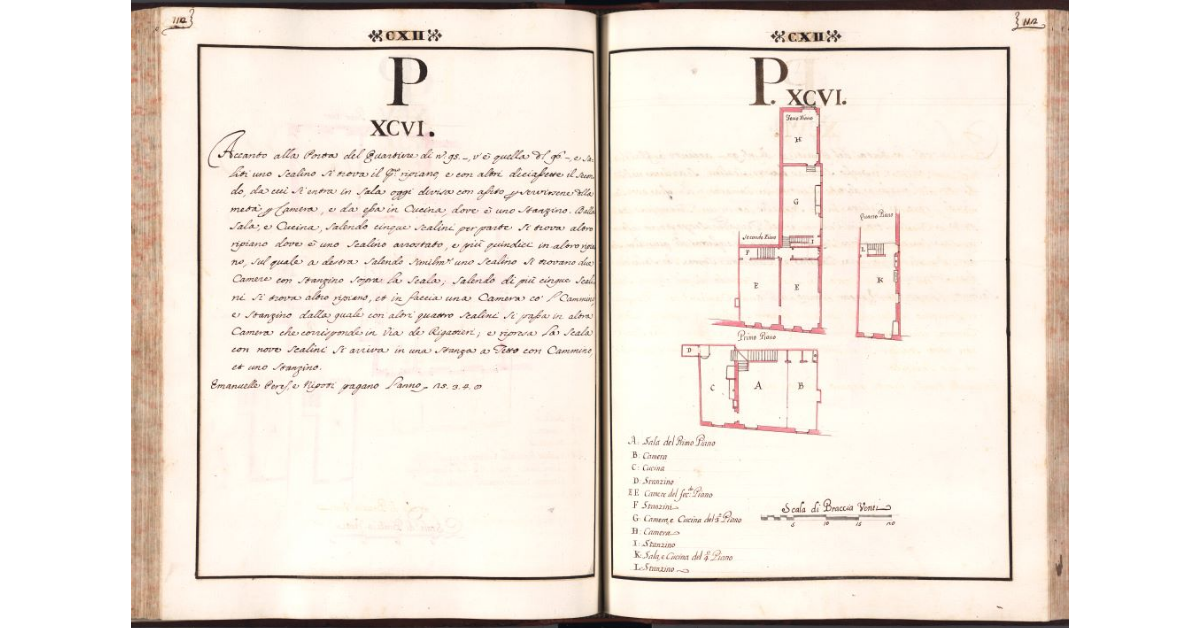 112
CXII
P
XCVI.
Accanto alla Porta del Quartiere di n°. 95 –, v'è quella di 96 –, e Sa-
liti uno Scalino Si trova il P.º ripiano, e con altri diciasette il Secon-
do, da cui Si entra in Sala oggi divisa con per Servirsene della
metà p Camera, e da essa in Cucina dove è uno Stanzino. Dalla
Sala, e Cucina, Salendo cinque Scalini per parte Si trova altro
ripiano dove è uno Scalino, e più quindici in altro ripia
no, Sul quale a destra Salendo Similm.te uno Scalino Si trovano due
Camere con Stanzino Sopra la Scala; Salendo di più cinque Scali
ni Si trova altro ripiano, et in faccia una Camera co' Cammino
e Stanzino dalla quale con altri quattro Scalini Si passa in altra
Camera che corrisponde in Via de Rigattieri; e ripresa La Scala
con nove Scalini Si arriva in una Stanza a Tetto con Cammino,
et uno Stanzino.
Emanuelle Peres, e Nipoti pagano L'anno
112
CXII
P. XCVI.
Terzo Piano
H
G
Secondo Piano
I
F
E
E
Quarto Piano
L
K
Primo Piano
D
C
A
B
A. Sala del Primo Piano
B. Camera
C. Cucina
D. Stanzino
E E Camere del Sec.do Piano
F Stanzini
G. Camera, e Cucina del 3.º Piano
H. Camera
I. Stanzino
K. Sala, e Cucina del 4.º Piano
L. Stanzino
Scala di Braccia Venti
5 10 15 20